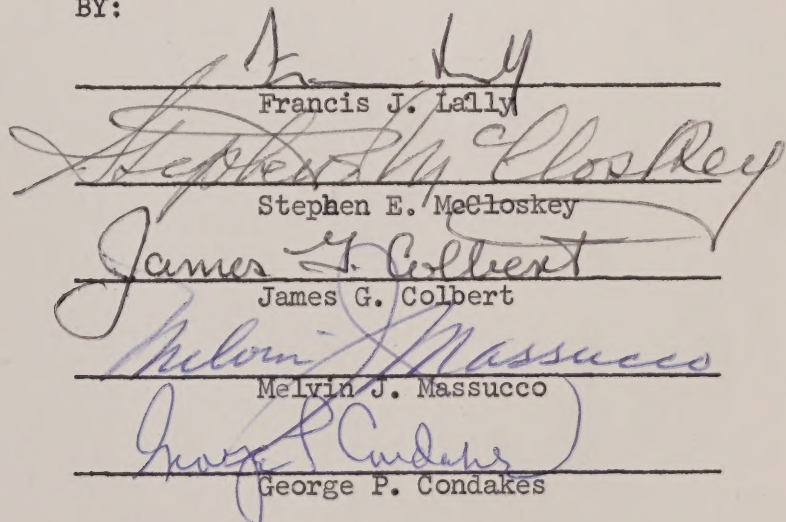 BY:
Francis J. Lally
Stephen E. McCloskey
Stephen E. McCloskey
James G. Colbert
James G. Colbert
Melvin J. Massucco
Melvin J. Massucco
George P. Condakes
George P. Condakes